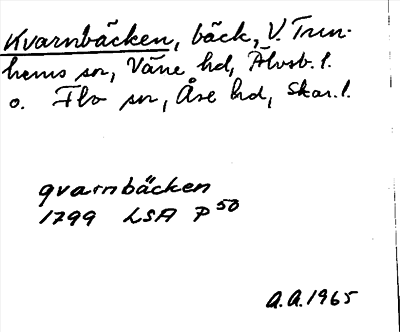 Kvarnbäcken, bäck, V. Tun-
hems sn, Väne hd, Älvsb. l.
o. Flo sn, Åse hd, Skar. l.
qvarnbäcken
1799 LSA P 50
A.A. 1965